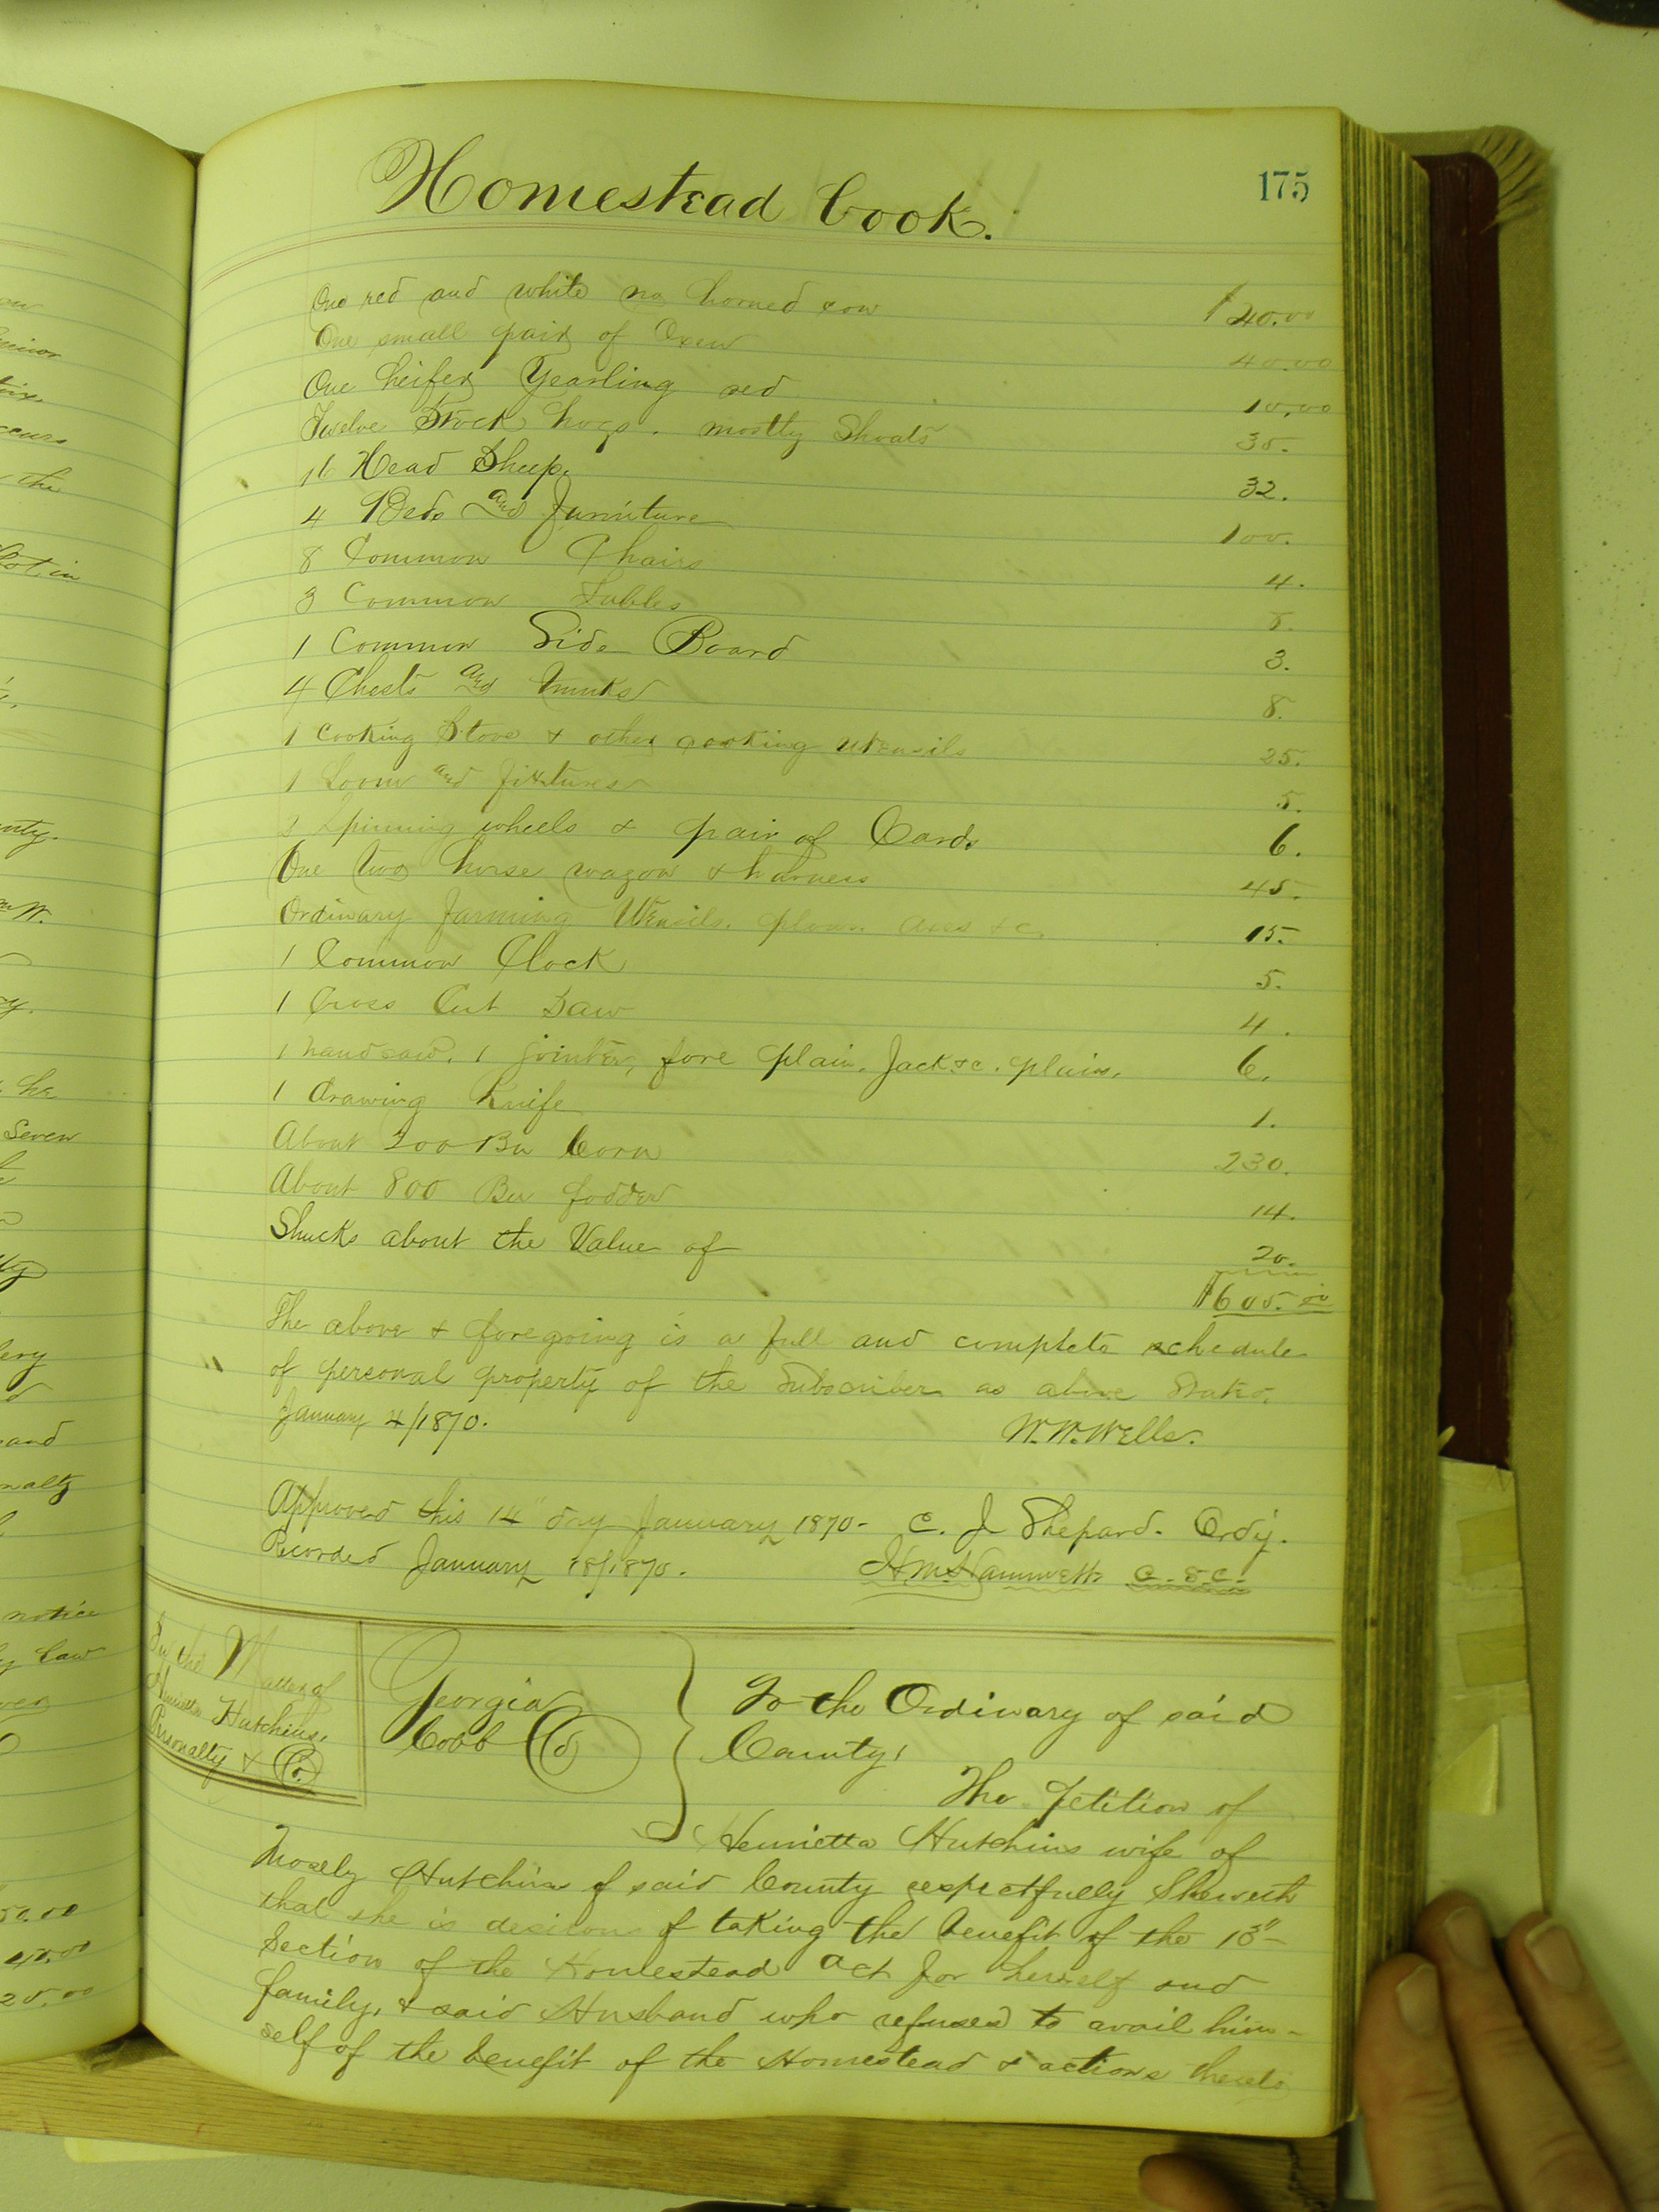 Homestead Book.
175
One red and white no horned cow $20.00
One small pair of Oxen 40.00
One heifer Yearling red 10.00
Twelve Stock hogs. mostly Shoats 35.
16 Head Sheep. 32.
4 Beds and Furniture 100.
8 Common Chairs 4.
3 Common Tables
1 Common Side Board 3.
4 Chests and Trunks 8.
1 Cooking Stove & other cooking utensils 25.
1 Loom and fixtures 5.
2 Spinning wheels & pair of Cards 6.
One two horse wagon & harness 45.
Ordinary farming Utensils. plows axes &c. 15.
1 Common Clock 5.
1 Cross Cut Saw 4.
1 hand saw. 1 jointer, fore plain, Jack &c. plain. 6.
1 drawing Knife 1.
About 200 Bu Corn 230.
About 800 Bu fodder 14.
Shucks about the Value of 20.
$605.00
The above & foregoing is a full and complete schedule
of personal property of the Subscriber as above States.
January 4/1870. W. W. Wells.
Approved this 14" day January 1870- C. J Shepard. Ordy.
Recorded January 18/1870. H M Hammett C.S.C.
In the Matter of
Henrietta Hutchins.
Personalty &
Georgia
Cobb Co
To the Ordinary of said
County,
The Petition of
Henrietta Hutchins wife of
Mosely Hutchins of said County respectfully Sheweth
that she is desirous of taking the benefit of the 13"
Section of the Homestead Act for herself and
family, & said Husband who refuses to avail him-
self of the benefit of the Homestead & actions thereto
notice
Seven
and
he
the
50.00
20.00